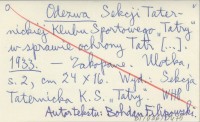 Odezwa Sekcji Tater-
nickiej Klubu Sportowego "Tatry"
w sprawie ochrony Tatr [...].
1933. — Zakopane. Ulotka,
s. 2, cm 24 x 16. Wyd. Sekcja
Taternicka K.S. "Tatry"
Autor tekstu: Bohdan Filipowski.